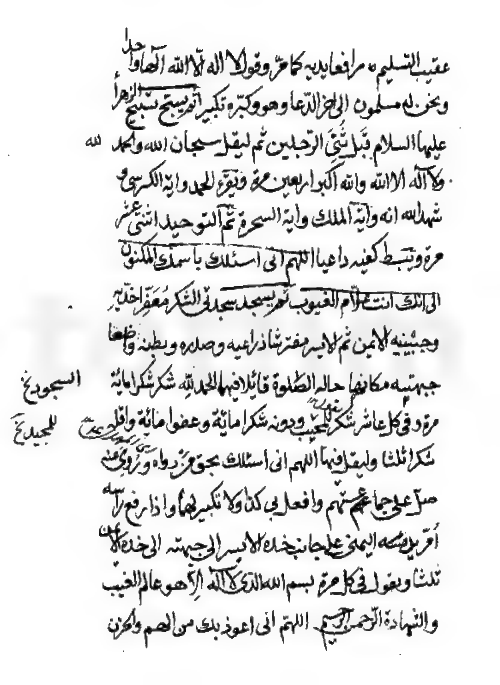 عقيب التسليم رافعا يديه كما مرّ وقول لا اله الّا الله الٓها واحدا
ونحن له مسلمون الى اخر الدّعا وهو وكبّره تكبير ثم يسبّح تسبيح الزهرا
عليها السلام قبل ثنى الرّجلين ثم ليقل سبحان الله والحمد لله
ولا آله الا الله والله اكبر اربعين مرة وتقرء الحمد واية الكرسى و
شهد الله انه واية الملك واية السحرة ثم التوحيد اثنى عشر
مرة وتبسط كفيه داعيا اللهم انى اسئلك باسمك المكنون
الى انك انت علّام الغيوب ثم يسجد سجدتى الشكر معفّرا خدّيه
وجبينيه الايمن ثم الايسر مفترشا ذراعيه وصدره وبطنه واضعا
جبهته مكانها حاله الصّلوة قائلا فيها الحمد لله شكرا شكرا مائة
مرة وفى كل عاشر شكرا للمجيب ودونه شكرا مائة وعفوا مائة واقله
شكرا ثلثا وليقل فيها اللهم انى اسئلك بحق من رواه وروى عنه
صلّ على جماعتهم وافعل بى كذا ولا تكبير لهما واذا رفع راسه
امرّ يده اليمنى على جانب خده الايسر الى جبهته الى خده الايمن
ثلثا ويقول فى كل مرة بسم الله الذى لا اله الّا هو عالم الغيب
والشهادة الرّحمن الرحيم اللهم انى اعوذ بك من الهم والحزن
السجود خ
للمجيد خ